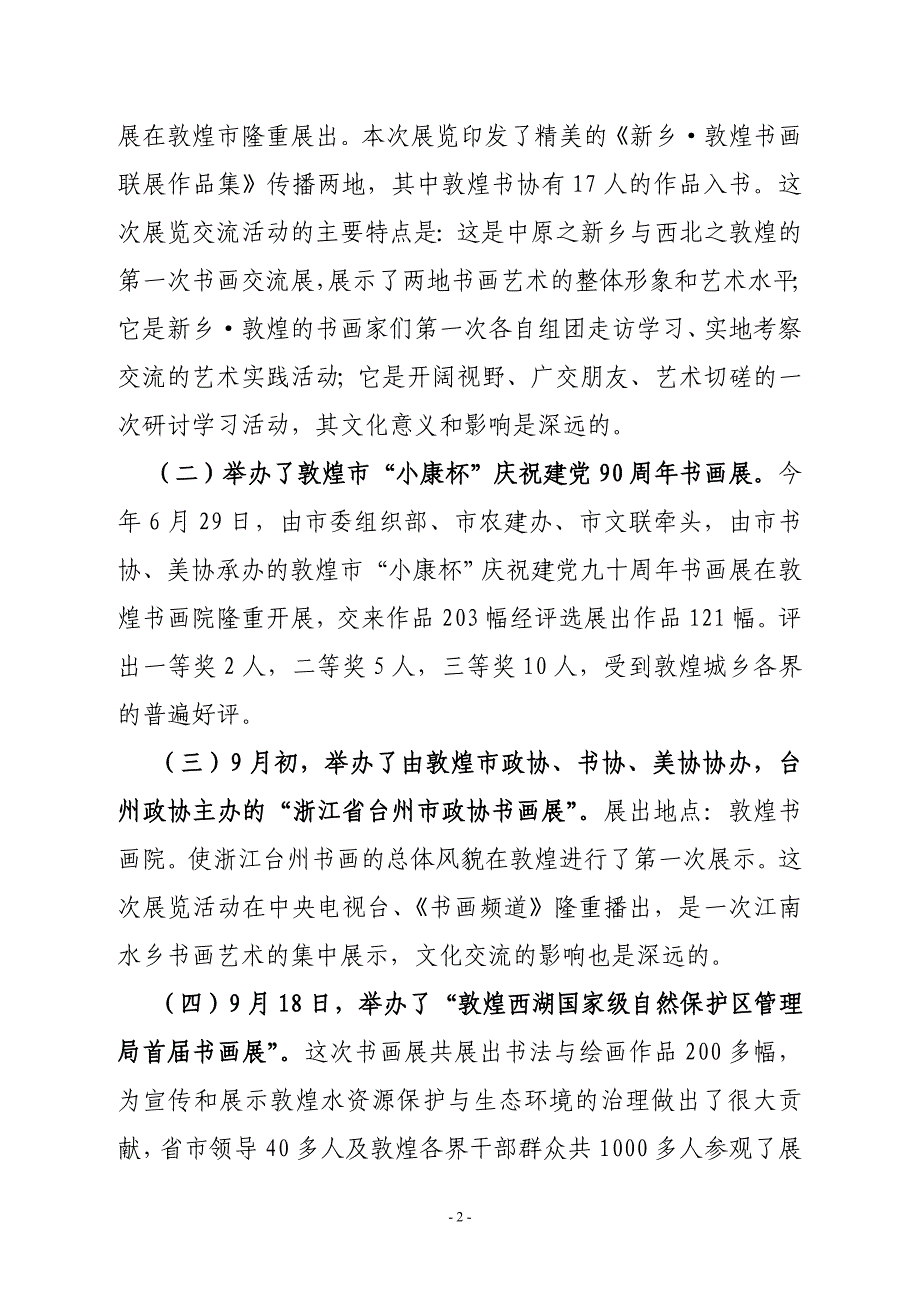 展在敦煌市隆重展出。本次展览印发了精美的《新乡·敦煌书画
联展作品集》传播两地，其中敦煌书协有 17 人的作品入书。这
次展览交流活动的主要特点是：这是中原之新乡与西北之敦煌的
第一次书画交流展，展示了两地书画艺术的整体形象和艺术水平；
它是新乡·敦煌的书画家们第一次各自组团走访学习、实地考察
交流的艺术实践活动；它是开阔视野、广交朋友、艺术切磋的一
次研讨学习活动，其文化意义和影响是深远的。
（二）举办了敦煌市“小康杯”庆祝建党 90 周年书画展。今
年 6 月 29 日，由市委组织部、市农建办、市文联牵头，由市书
协、美协承办的敦煌市“小康杯”庆祝建党九十周年书画展在敦
煌书画院隆重开展，交来作品 203 幅经评选展出作品 121 幅。评
出一等奖 2 人，二等奖 5 人，三等奖 10 人，受到敦煌城乡各界
的普遍好评。
（三）9 月初，举办了由敦煌市政协、书协、美协协办，台
州政协主办的“浙江省台州市政协书画展”。展出地点：敦煌书
画院。使浙江台州书画的总体风貌在敦煌进行了第一次展示。这
次展览活动在中央电视台、《书画频道》隆重播出，是一次江南
水乡书画艺术的集中展示，文化交流的影响也是深远的。
（四）9 月 18 日，举办了“敦煌西湖国家级自然保护区管理
局首届书画展”。这次书画展共展出书法与绘画作品 200 多幅，
为宣传和展示敦煌水资源保护与生态环境的治理做出了很大贡
献，省市领导 40 多人及敦煌各界干部群众共 1000 多人参观了展
- 2 -